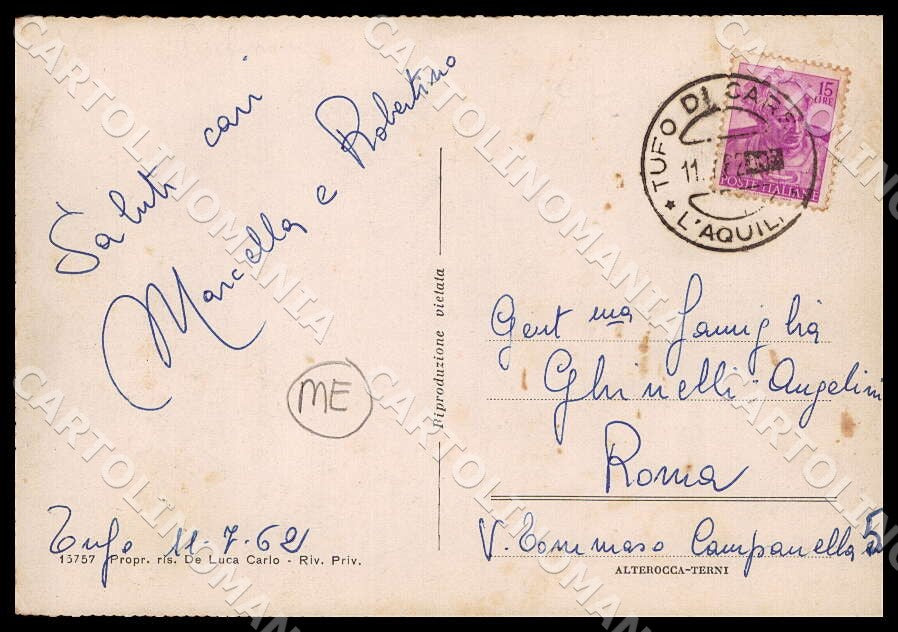 Saluti cari
Marcella e Robertino
ME
Tufo 11-7-62
15757 Propr. ris. De Luca Carlo - Riv. Priv.
Riproduzione vietata
15
LIRE
POSTE ITALIANE
TUFO DI CAR
11.
L'AQUIL
Gent ma Famiglia
Ghinelli-Angelini
Roma
V. Tommaso Campanella 5
ALTEROCCA-TERNI
CARTOLINOMANIA